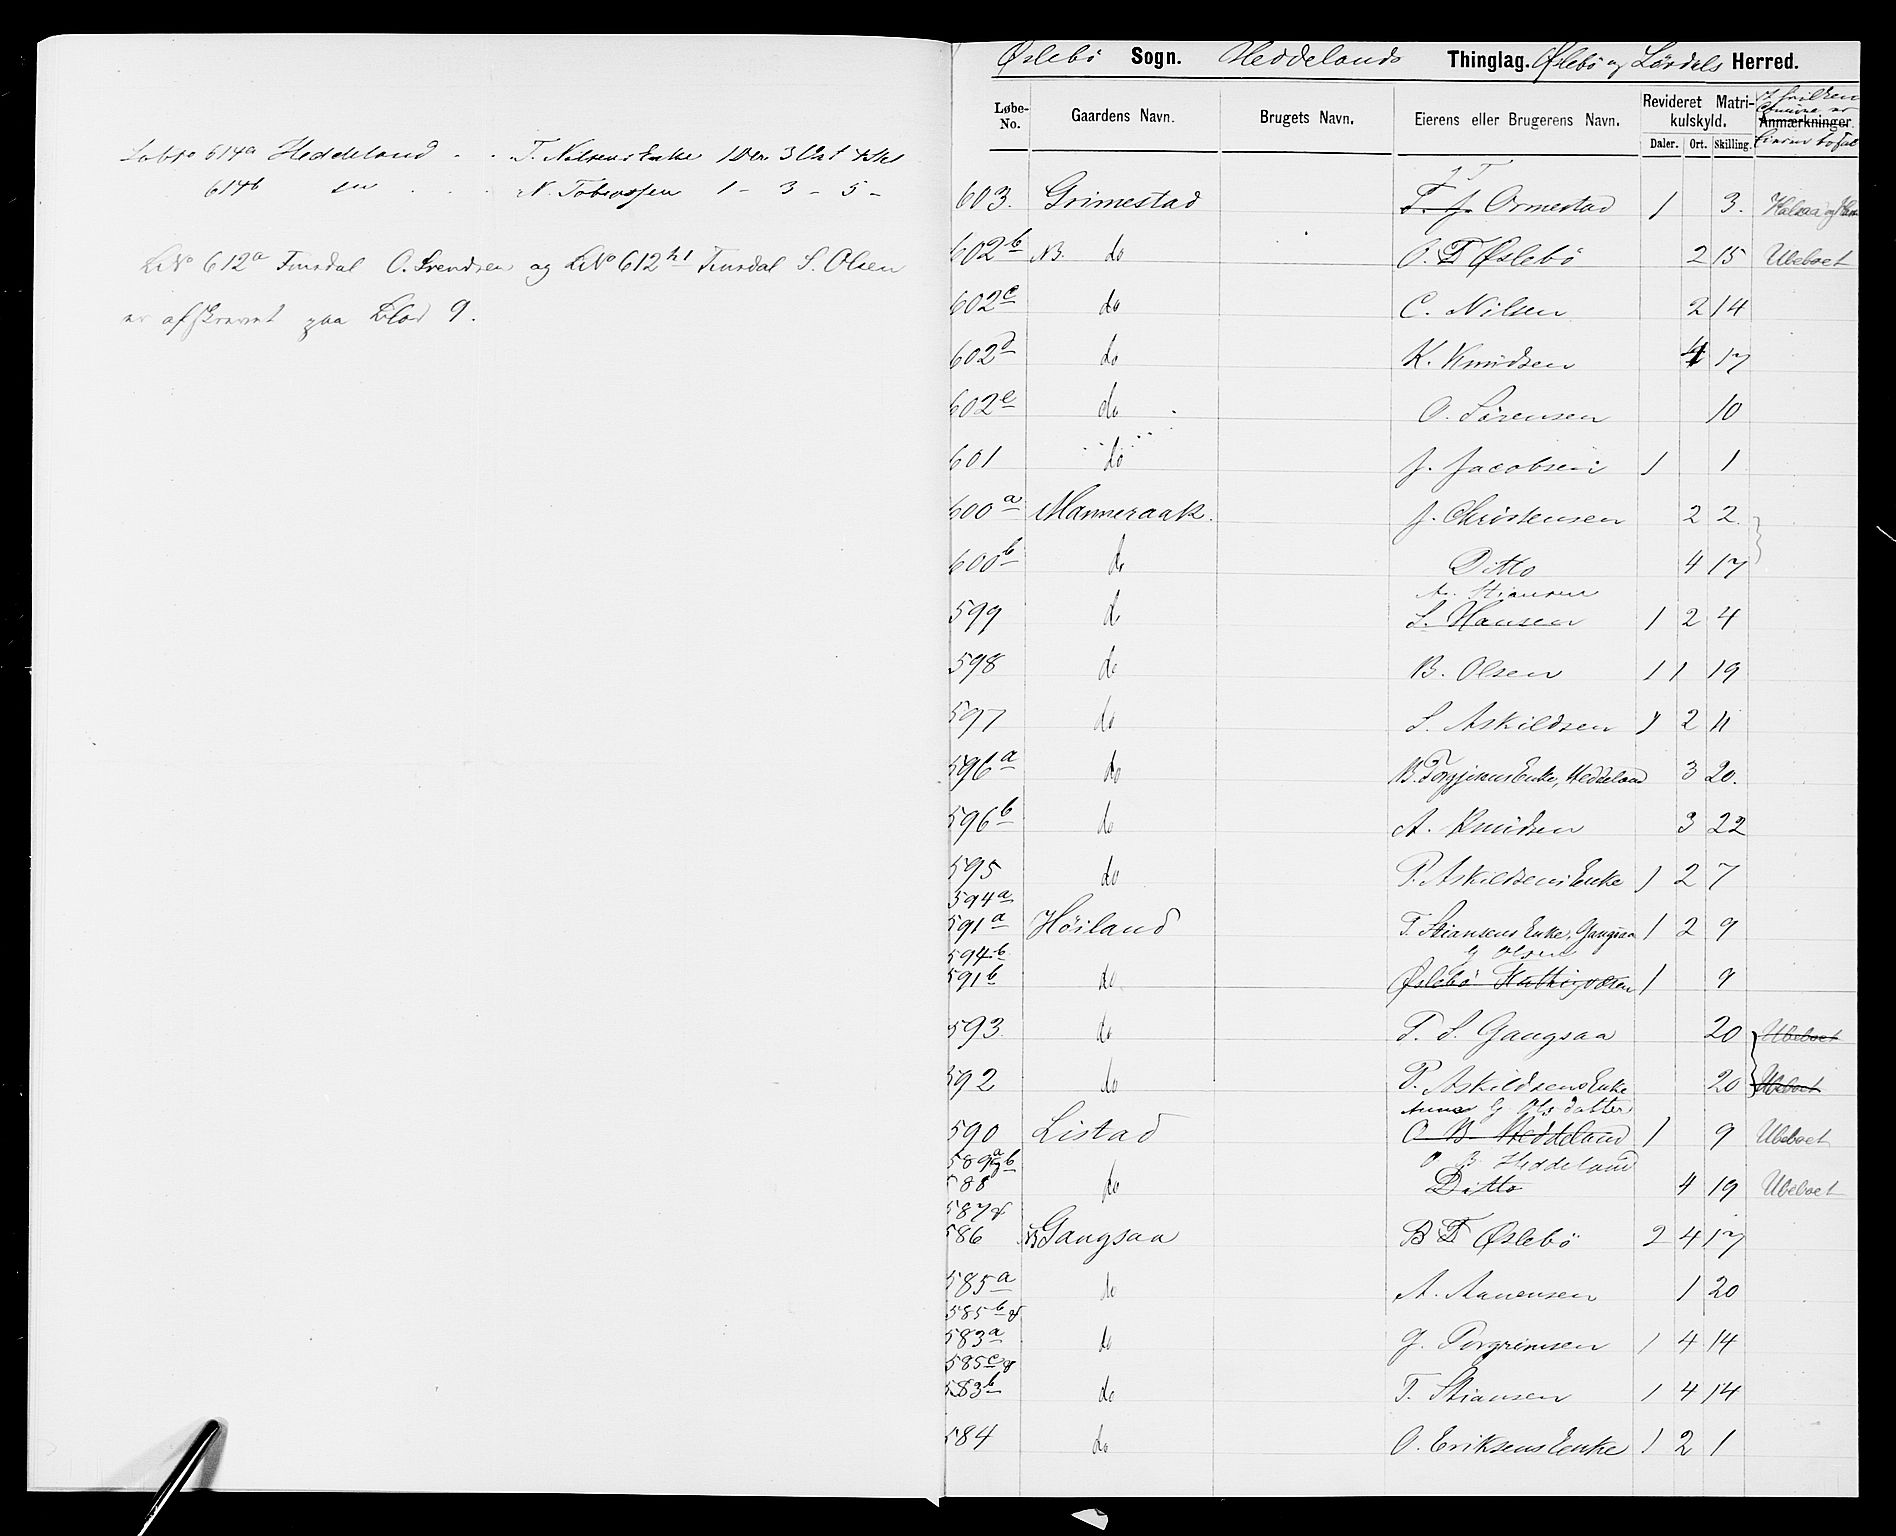 Løbno 614a Heddeland - - T. Nilsens Enke 1 Dlr. 3 Ort
614b do - - - N. Tobiassen 1 - 3 - 5 -
LNo 612a Finsdal O. Svendsen og LNo 612 Finsdal S. Olsen
er afskrevet paa Blad 9.
Øslebö Sogn. Heddelands Thinglag. Øslebö og Herred.
Løbe-No. Gaardens Navn. Brugets Navn. Eierens eller Brugerens Navn. Revideret Matrikulskyld. Anmærkninger.
Daler. Ort. Skilling.
603. Grimestad T. J. Ormestad 1 3. Halsaa og
602b NB. do O. T Øslebö 2 15 Ubeboet
602c do C. Nilsen 2 14
602d do K. Knudsen 4 17
602e do O. Sörensen 10
601 do J. Jacobsen 1 1
600a Manneraak. J. Christensen 2 2
600b do Ditto 4 17
A. Stiansen
599 do S. Hansen 1 2 4
598 do B. Olsen 1 1 19
597 do S. Askildsen 1 2 11
596a do B. Enke, Heddeland 3 20.
596b do A. Knudsen 3 22
595 do P. Askildsens Enke 1 2 7
594a
591a Höiland T. Stiansens Enke, Gangsaa 1 2 9
594b G Olsen
591b do Øslebö 1 9
593. do T. S. Gangsaa 20 Ubeboet
592 do P. Askildsens Enke 20 Ubeboet
Anne G Olsdatter
590 Listad O B Heddeland 1 9 Ubeboet
589a og b O B Heddeland
588 do Ditto 4 19 Ubeboet
587 &
586 NB Gangsaa B T Øslebö 2 4 17
585a do A. Aanensen 1 20
585b &
583a do G. Torgrimsen 1 4 14
585c &
583b do T. Stiansen 1 4 14
584 do O. Eriksens Enke 1 2 1